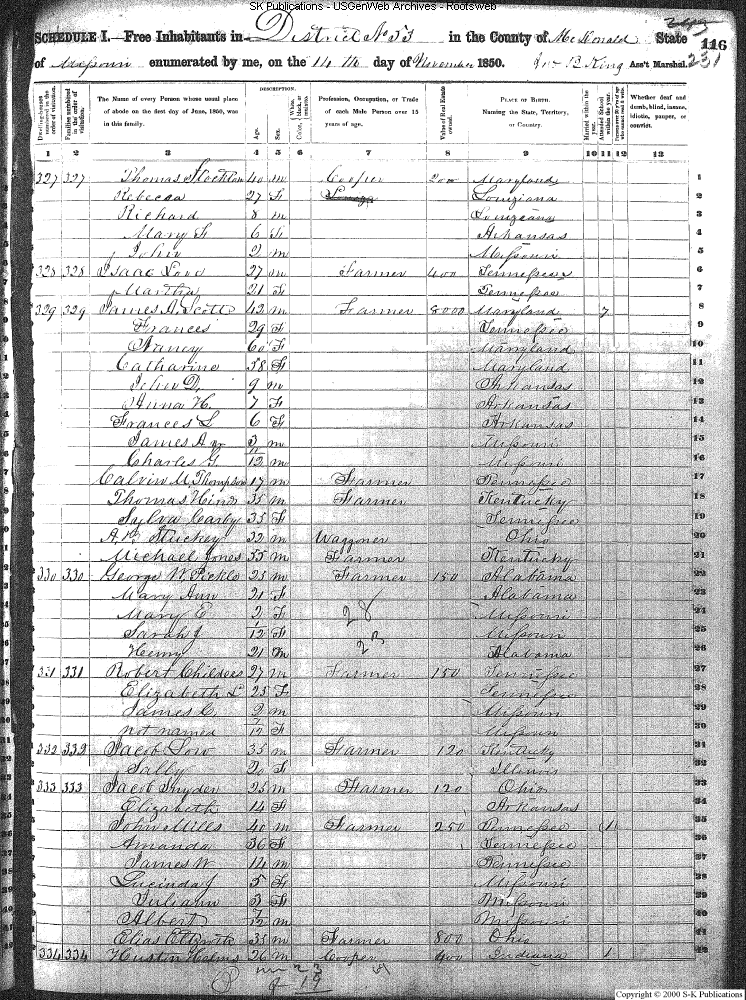 SK Publications - USGenWeb Archives - Rootsweb
SCHEDULE I.—Free Inhabitants in District No 53 in the County of McDonald State 116
of Missouri enumerated by me, on the 14th day of November 1850. Jno B King Ass't Marshal. 231
Dwelling-houses numbered in the order of visitation. Families numbered in the order of visitation. The Name of every Person whose usual place of abode on the first day of June, 1850, was in this family. DESCRIPTION. Age. Sex. White, black, or mulatto. Profession, Occupation, or Trade of each Male Person over 15 years of age. Value of Real Estate owned. PLACE OF BIRTH. Naming the State, Territory, or Country. Married within the year. Attended School within the year. Whether deaf and dumb, blind, insane, idiotic, pauper, or convict.
1 2 3 4 5 6 7 8 9 10 11 12 13
327 327 Thomas Stockton 40 m Cooper 200 Maryland 1
Rebecca 27 F Louiziana 2
Richard 8 m Louiziana 3
Mary F 6 F Arkansas 4
John 2 m Missouri 5
328 328 Isaac Love 27 m Farmer 400 Tennessee 6
Martha 21 F Tennessee 7
329 329 James A. Scott 42 m Farmer 8000 Maryland 8
Frances 29 F Tennessee 9
Nancy 60 F Maryland 10
Catharine 38 F Maryland 11
John D. 9 m Arkansas 12
Anna H. 7 F Arkansas 13
Frances L 6 F Arkansas 14
James A jr 3 m Missouri 15
Charles G. 11/12 m Missouri 16
Calvin M Thompson 17 m Farmer Tennessee 17
Thomas 35 m Farmer Kentucky 18
Sylva Carby 35 F Tennessee 19
Stuckey 32 m Waggoner Ohio 20
Michael Jones 35 m Farmer Kentucky 21
330 330 George W. Pickle 25 m Farmer 150 Alabama 22
Mary Ann 21 F Alabama 23
Mary E 2 F 28 Missouri 24
Sarah J 1/12 F Missouri 25
Henry 21 m 23 Alabama 26
331 331 Robert Childers 27 m Farmer 150 Tennessee 27
Elizabeth L 25 F Tennessee 28
James C. 2 m Missouri 29
not named 7/12 F Missouri 30
332 332 Jacob Low 35 m Farmer 120 Kentucky 31
Sally 20 F Illinois 32
333 333 Jacob Snyder 25 m Farmer 120 Ohio 33
Elizabeth 14 F Arkansas 34
John Mills 40 m Farmer 250 Tennessee 1 35
Amanda 36 F Tennessee 36
James W 14 m Tennessee 37
Lucinda J 5 F Missouri 38
Juliann 3 F Missouri 39
Albert 7/12 m Missouri 40
Elias 33 m Farmer 800 Ohio 41
334 334 Hustin Helms 26 m Cooper 400 Indiana 1 42
Copyright © 2000 S-K Publications